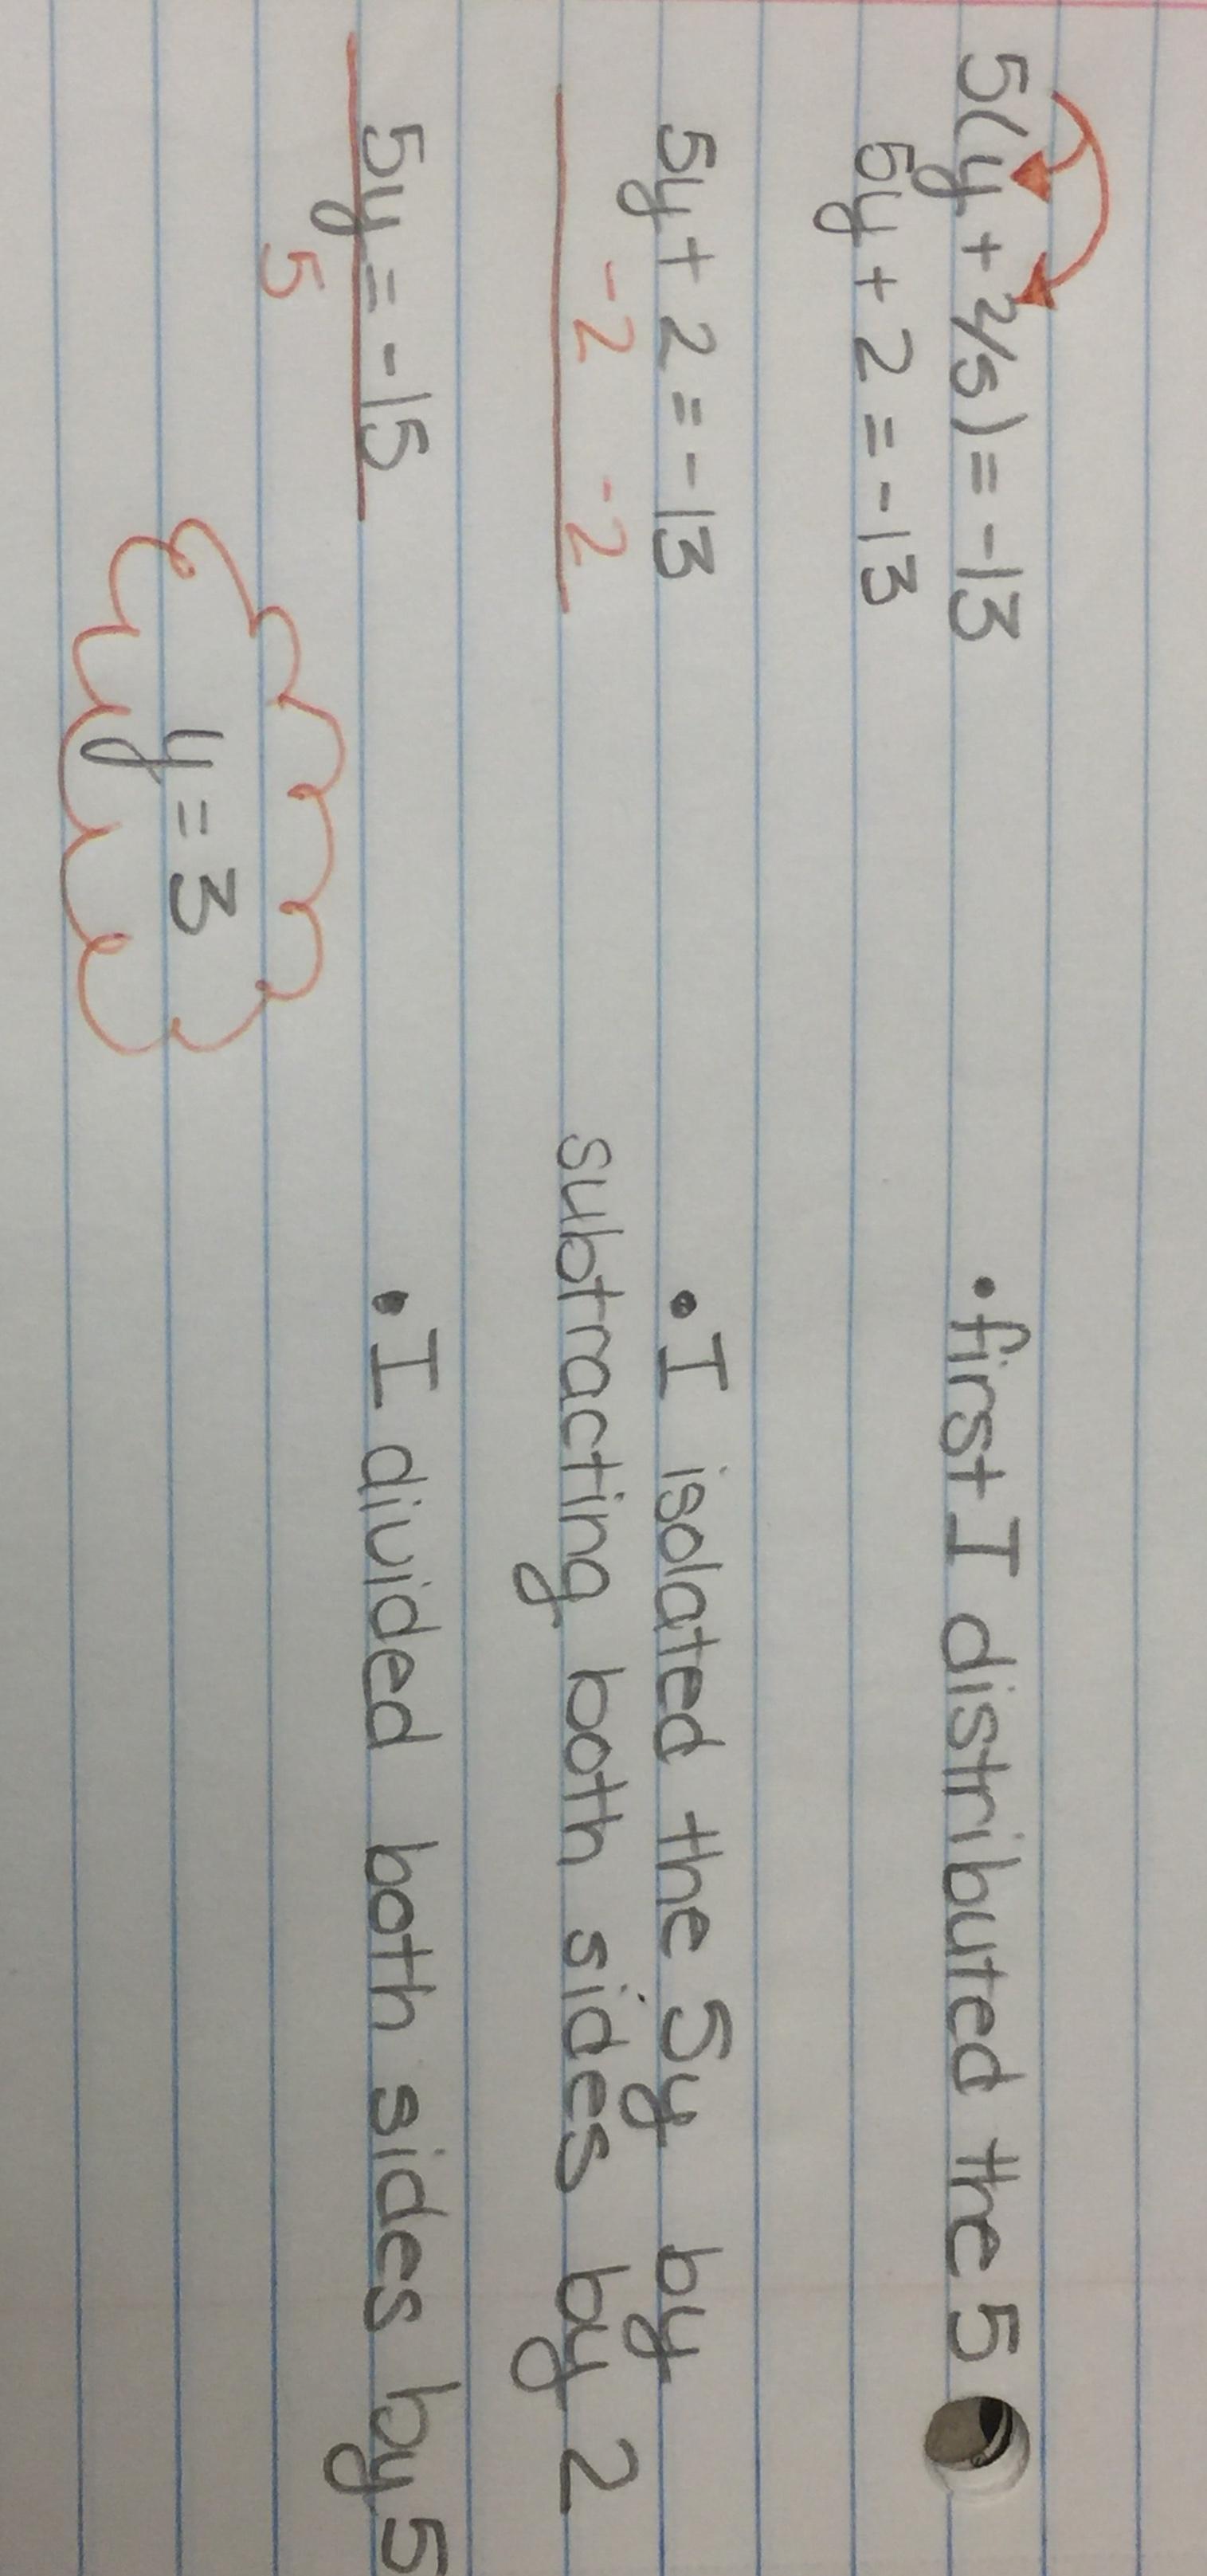 5(y + 2/5) = -13 • first I distributed the 5
5y + 2 = -13
5y + 2 = -13 • I isolated the 5y by
-2 -2 subtracting both sides by 2
5y = -15 • I divided both sides by 5
5
y = 3